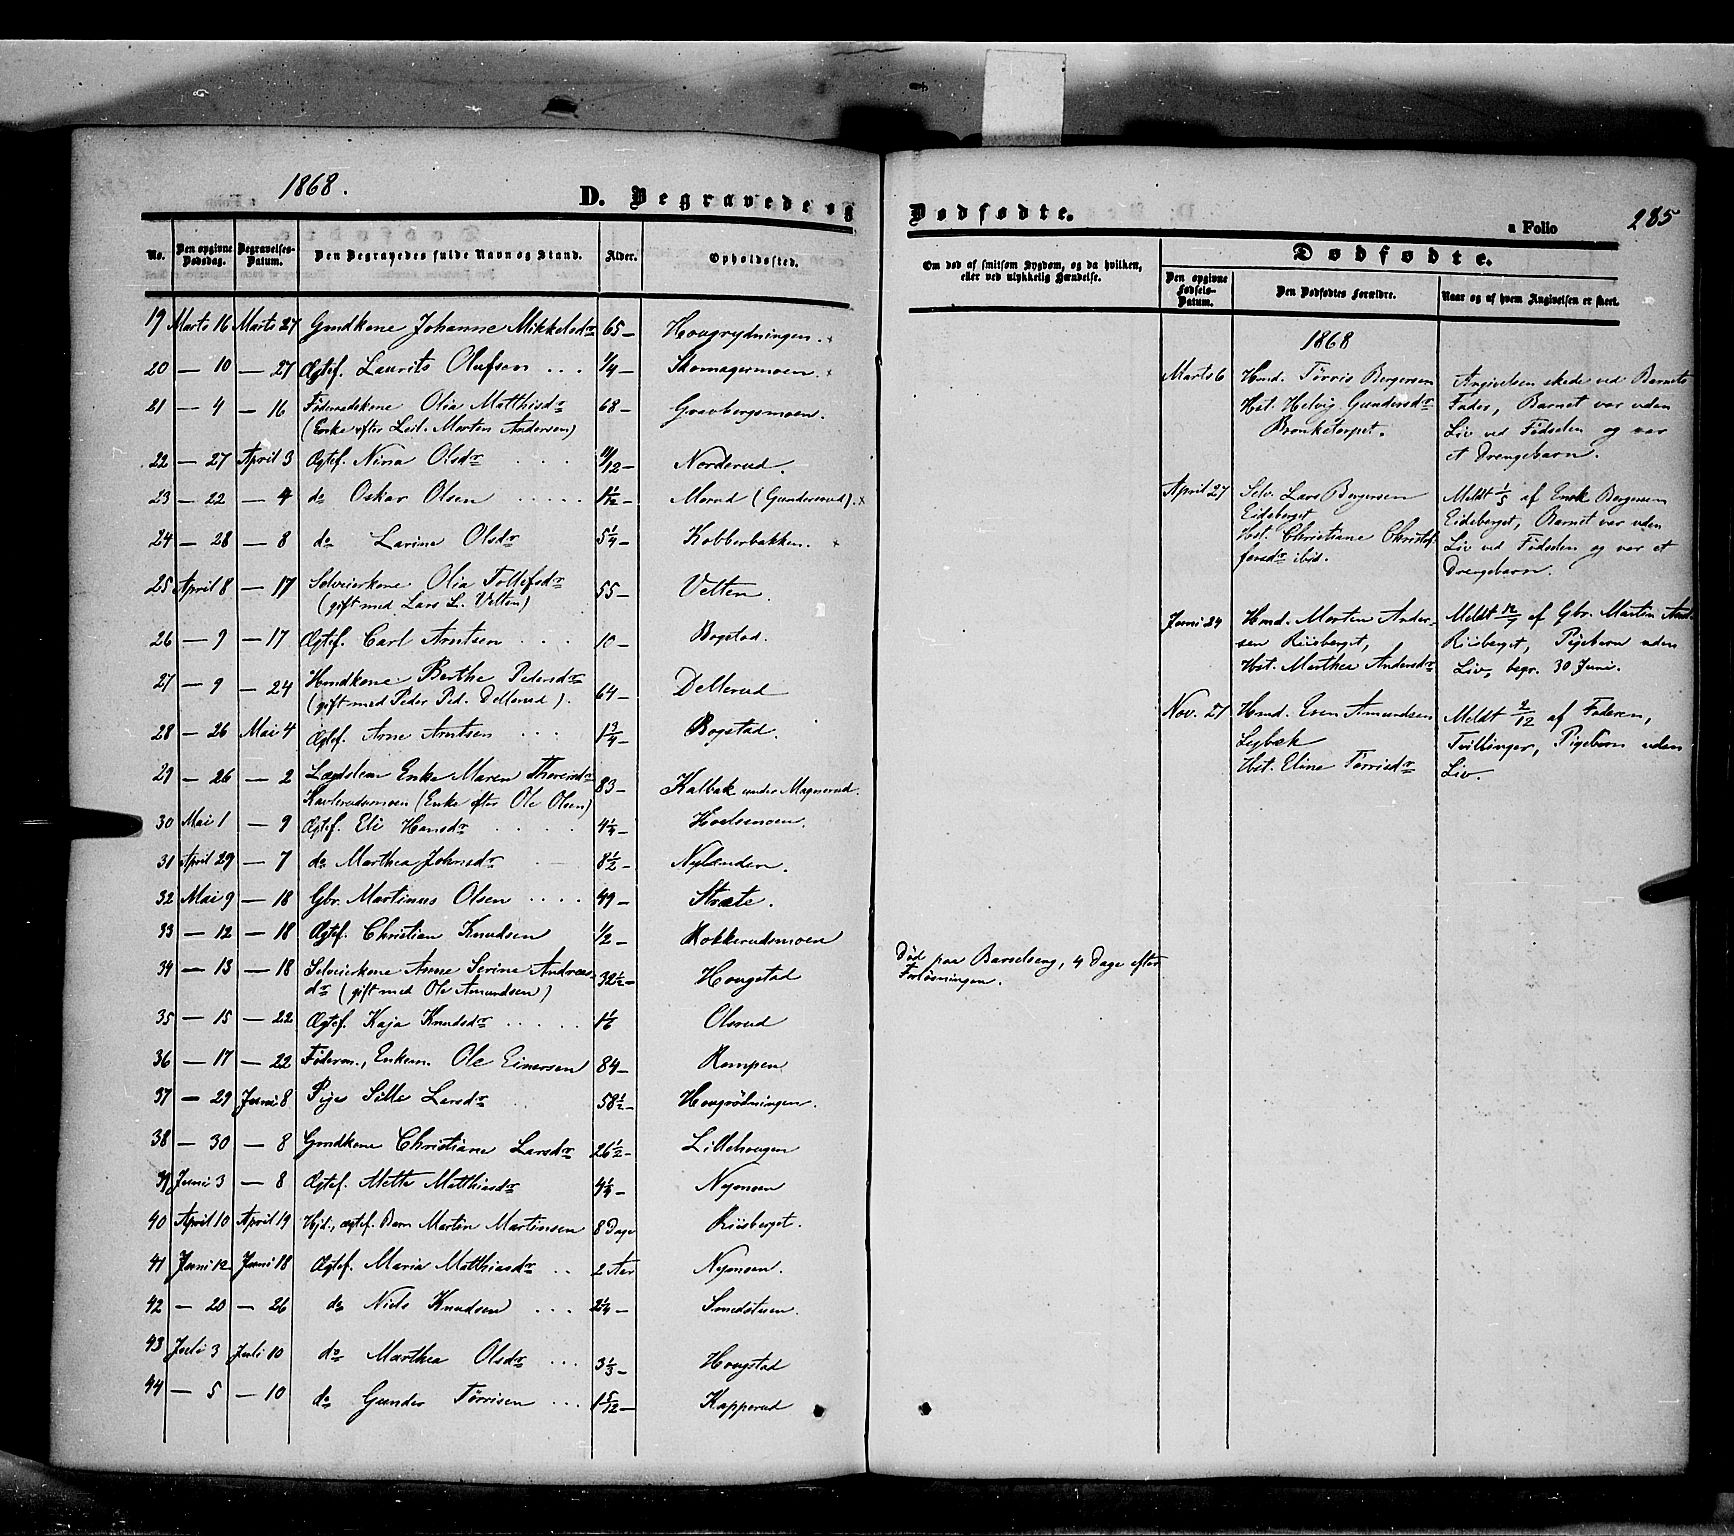 1868.
D. Begravede og
No. Den opgivne Dødsdag. Begravelses-Datum. Den Begravedes fulde Navn og Stand. Alder. Opholdssted.
19 Marts 16 Marts 27 Gmdkone Johanne Mikkelsdr 65 – Hougrydningen.
20 — 10 — 27 Ægtef. Laurits Olufsen ... 1/4 – Skomagermoen.
21 — 4 — 16 Føderaadskone Olia Matthisdr 68 – Gravbergsmoen.
(Enke efter Leil. Morten Andersen)
22 — 27 April 3 Ægtef. Nina Olsdr .... 11/12 – Norderud.
23 — 22 — 4 do Oskar Olsen ..... 1 1/2 – Morud (Gunderud).
24 — 28 — 8 do Larine Olsdr 5 1/4 – Kobberbakken.
25 April 8 — 17 Selveierkone Olia Tollefsdr 55 – Velten.
(gift med Lars L. Velten)
26 — 9 — 17 Ægtef. Carl Arntsen ... 10 – Bogstad.
27 — 9 — 24 Hmdkone Berthe Pedersdr 64 – Dellerud
(gift med Peder Ped. Dellerud).
28 — 26 Mai 4 Ægtef. Arne Arntsen ... 1 3/4 – Bogstad.
29 — 26 — 2 Lægdslem Enke Maren Thorersdr 83 – Kalbak under Magnerud.
(Enke efter Ole Olsen)
30 Mai 1 — 9 Ægtef. Eli Hansdr ..... 4 1/4 – Hoelsmoen.
31 April 29 — 7 do Marthea Johnsdr 8 1/2 – Nylænden.
32 Mai 9 — 18 Gbr. Martinus Olsen .... 49 – Stræte.
33 — 12 — 18 Ægtef. Christian Knudsen 1/2 – Kokkerudsmoen
34 — 13 — 18 Selveierkone Anne Serine Andreas-
dr (gift med Ole Amundsen) 32 1/2 – Hougstad
35 — 15 — 22 Ægtef. Kaja Knudsdr ..... 1 1/6 Olsrud
36 — 17 — 22 Føderm., Enkem. Ole Einersen 84 – Rompen
37 — 29 Juni 8 Pige Sille Larsdr 58 1/2 – Hougrødningen.
38 — 30 — 8 Gmdkone Christiane Larsdr 26 1/2 – Lillehougen
39 Juni 3 — 8 Ægtef. Mette Matthiasdr 4 1/4 – Nymoen
40 April 10 April 19 Hjd., ægtef. Barn Martin Martinsen 8 Dage Riisberget.
41 Juni 12 Juni 18 Ægtef. Maria Matthiasdr .. 2 Aar Nymoen.
42 — 20 — 26 do Niels Knudsen ... 2 1/4 – Smedstuen.
43 Juli 3 Juli 10 do Marthea Olsdr ... 3 1/3 – Hougstad
44 — 5 — 10 do Gunder Tørrisen ... 1 5/12 – Kapperud
Dødfødte.
a Folio 285
Om død af smitsom Sygdom, og da hvilken, eller ved ulykkelig Hændelse.
Dødfødte.
Den opgivne Fødsels-Datum. Den Dødfødtes Forældre. Naar og af hvem Angivelsen er skeet.
Død paa Barselseng, 4 Dage efter
Forløsningen.
1868
Marts 6 Hmd. Tørris Bergersen Angivelsen skede ved Barnets
Hst. Helvig Gundersdr Fader, Barnet var uden
Bronketorpet. Liv ved Fødselen og var
et Drengebarn.
April 27 Selv. Lars Bergersen Meldt 1/5 af Enok Bergersen
Eidsberget Eidsberget, Barnet var uden
Hst. Christiane Christof- Liv ved Fødselen og var et
fersdr ibid. Drengebarn.
Juni 24 Hmd. Morten Ander- Meldt 12/7 af Gbr. Martin And.
sen Riisberget, Riisberget, Pigebarn uden
Hst. Marthea Andersdr Liv, begr. 30 Juni.
Nov. 27 Hmd. Even Amundsen Meldt 2/12 af Faderen,
Løbæk Tvillinger, Pigebarn uden
Hst. Eline Tørrisdr Liv.